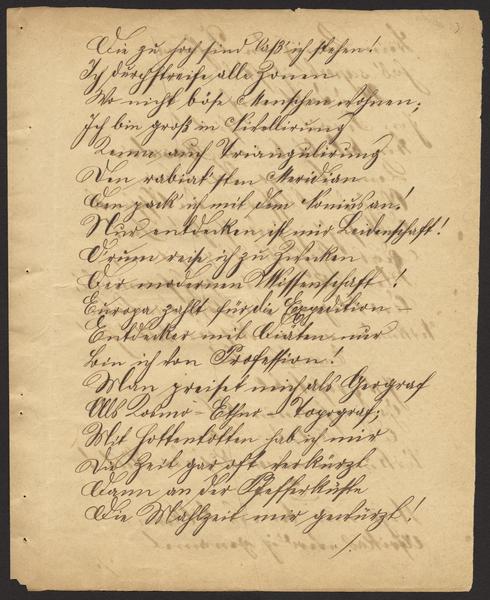 Die zu hoch sind laß' ich stehen!
Ich durchstreife alle Zonen
Wo nicht böse Menschen wohnen;
Ich bin groß in Nivellirung
Kenn auch Triangulirung
Den rabiat'sten Meridian
Den pack' ich mit dem Nonius an!
Nur entdecken ist mir Leidenschaft!
Drum reise ich zu Zwecken
Der modernen Wissenschaft!
Europa zahlt für die Expedition –
Entdecker mit Diäten nur
bin ich von Profession!
Man preiset mich als Geograf
Als Kosmo – Ethno – Topograf;
Mit Hottentotten hab ich mir
Die Zeit gar oft verkürzt
Dann an der Pfefferküste
Die Mahlzeit mir gewürzt!